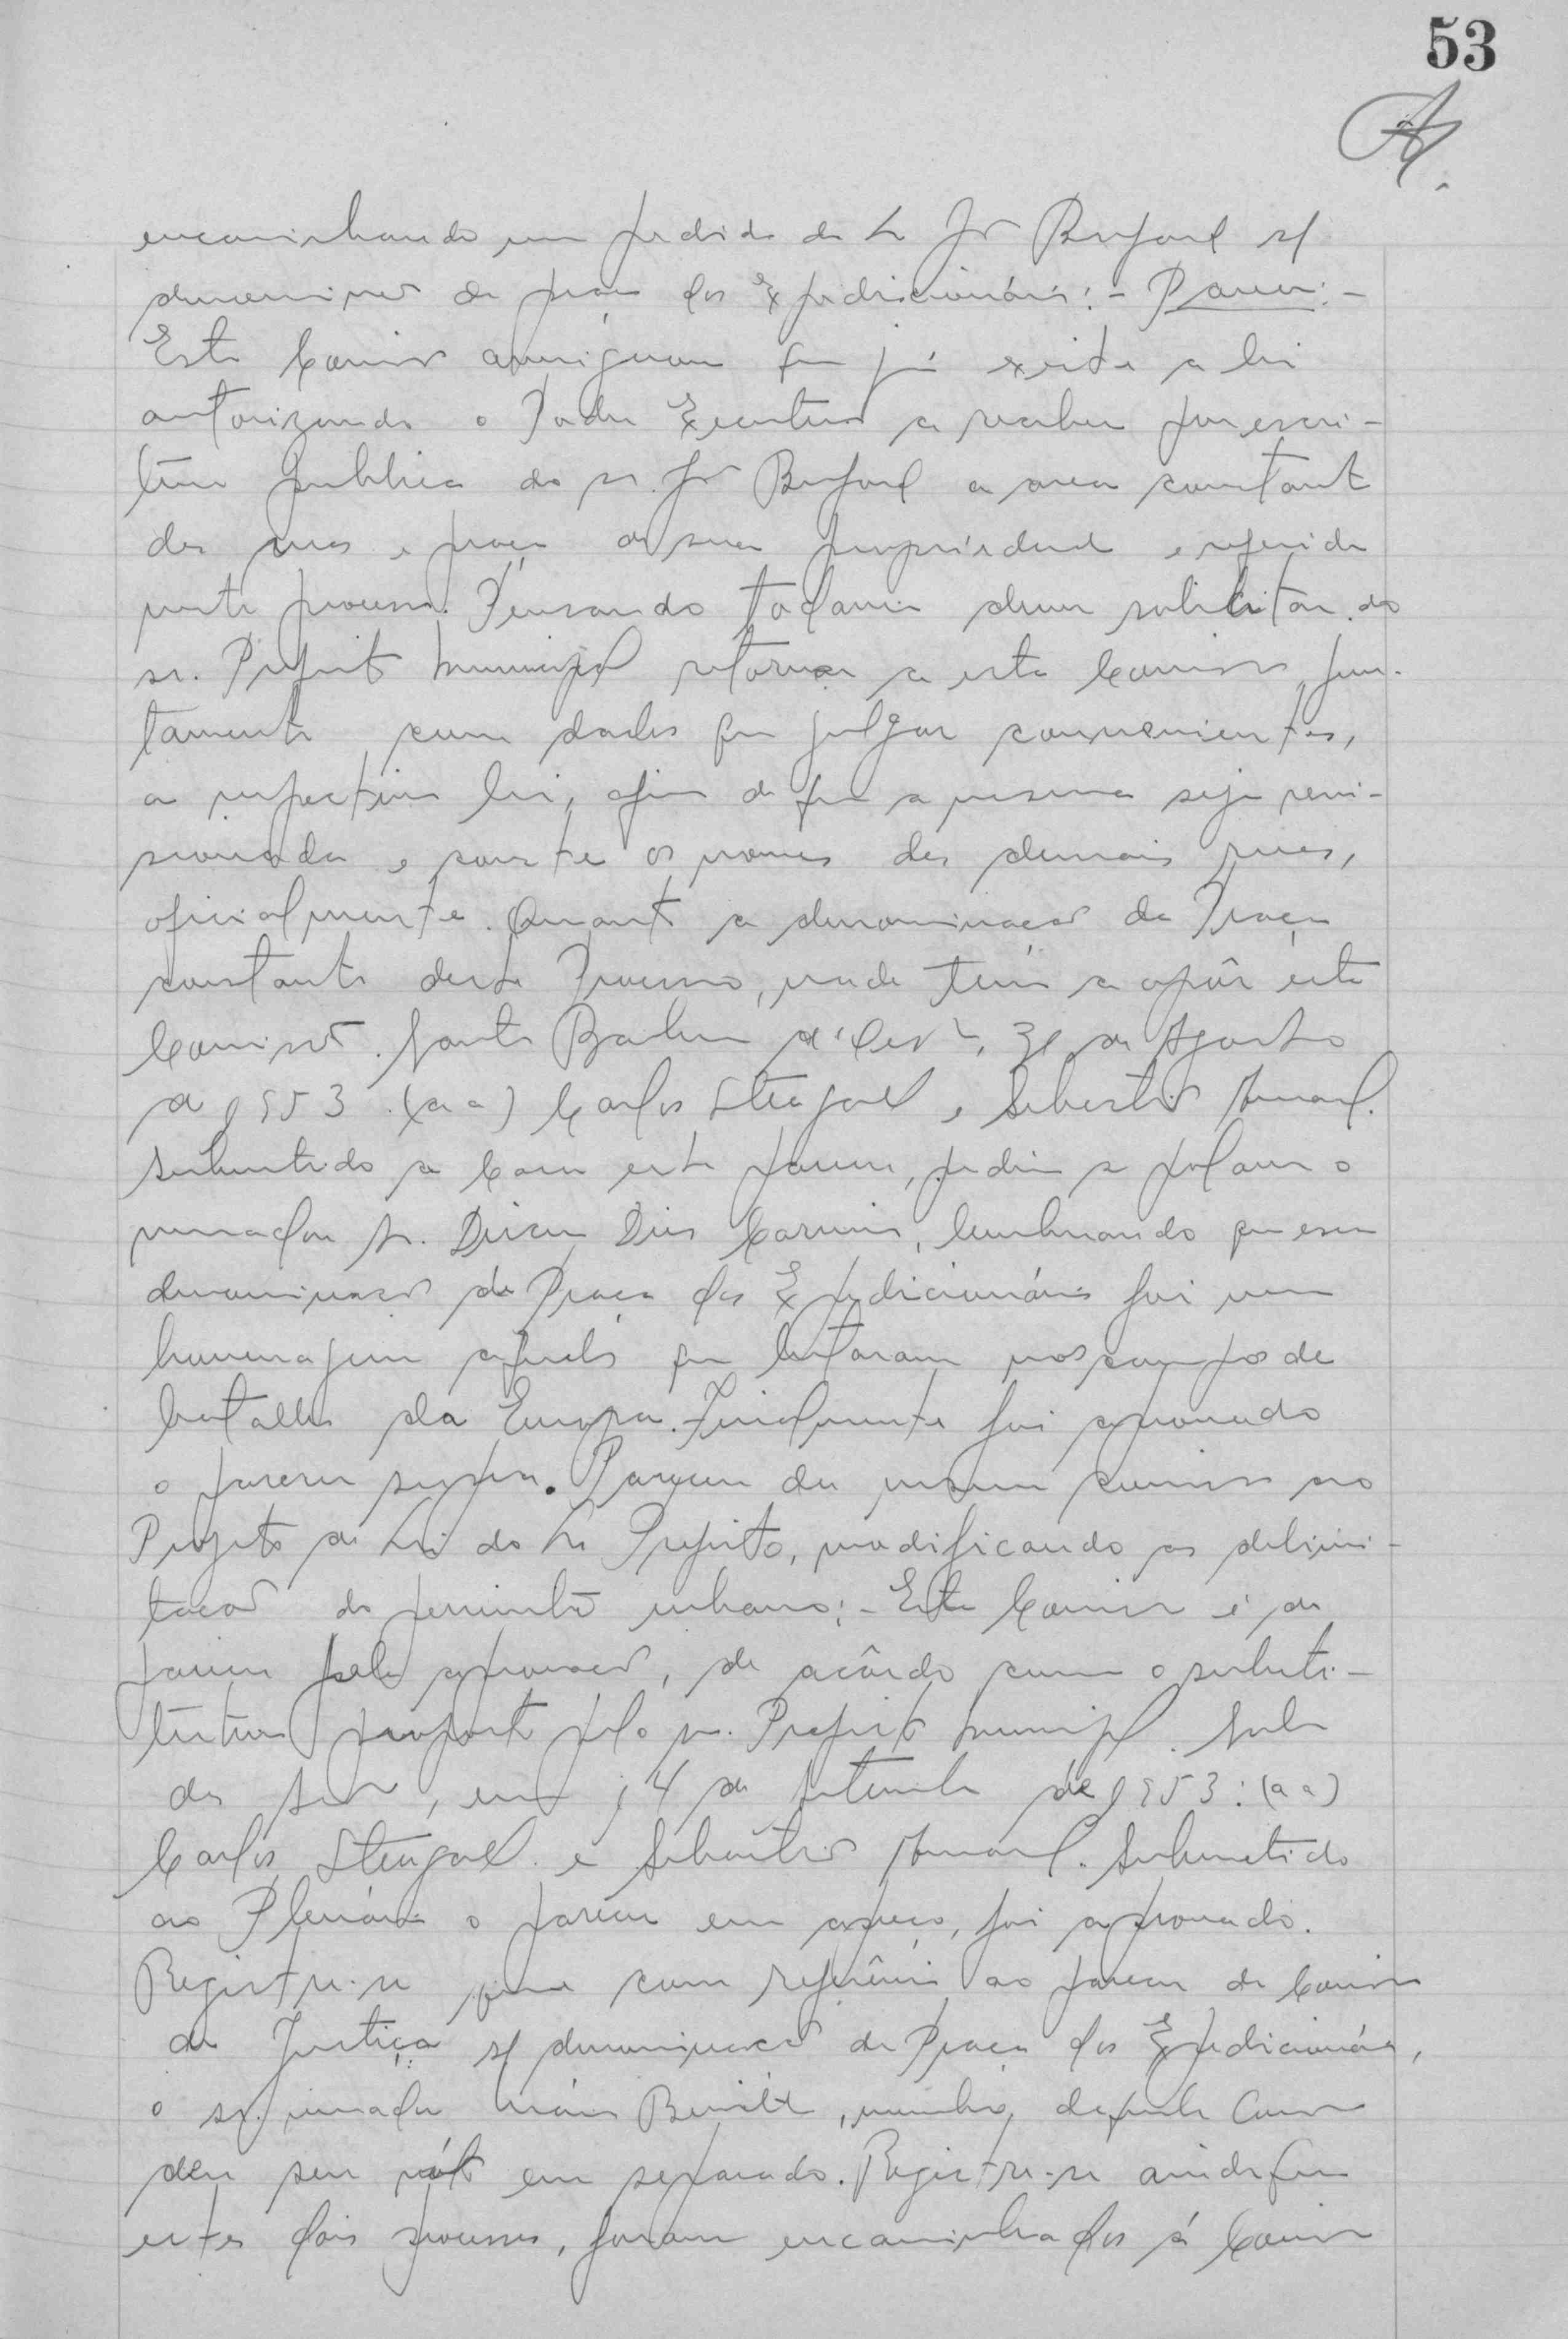 53
encaminhando um pedido do Sr José s/
denominação da praça dos Expedicionários:- Parecer:-
Esta Comissão averiguou que já existe a lei
autorizando o Poder Executivo a receber por escri-
tura publica do sr. José a area constante
das ruas e praça de sua propriedade e referida
neste processo. Pensando todavia devem solicitar do
sr. Prefeito Municipal retornar a esta Comissão, jun-
tamente com dados que julgar convenientes,
a respectiva lei, afim de que a mesma seja revi-
sionada e conste os nomes das demais ruas,
oficialmente. Quanto a denominação da Praça
constante deste Processo, nada tem a opôr esta
Comissão. Santa Barbara d'Oeste, 31 de Agosto
de 1953. (aa) Carlos Steagall e Sebastião
Submetido a Casa este parecer, pediu a palavra o
vereador Sr. Dirceu Dias Carneiro, lembrando que essa
denominação de Praça dos Expedicionários foi uma
homenagem aqueles que lutaram nos campos de
batalha da Europa. Finalmente foi aprovado
o parecer supra. Parecer da mesma comissão ao
Projeto de Lei do Sr Prefeito, modificando as delimi-
tação do perimetro urbano:- Esta Comissão é de
parecer pela aprovação, de acôrdo com o substi-
tutivo proposto pelo sr. Prefeito Municipal. Sala
das Sessões, em 14 de Setembro de 1953: (aa)
Carlos Steagall e Sebastião Submetido
ao Plenário o parecer em apreço, foi aprovado.
Registre-se que com referência ao parecer da Comissão
de Justiça s/ denominação da Praça dos Expedicionários,
o sr. vereador Mário membro daquela Comissão
deu seu voto em separado. Registre-se ainda que
estes dois processos, foram encaminhados á Comissão